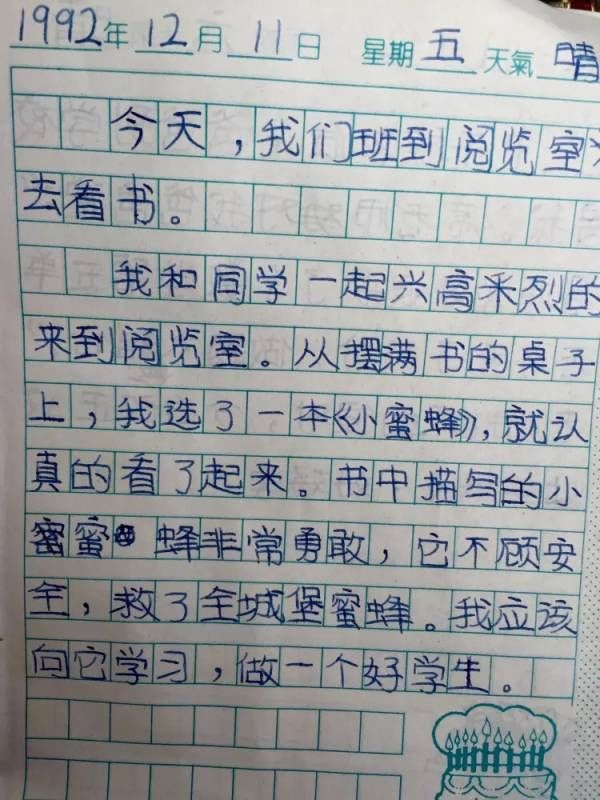 1992年12月11日 星期五 天氣晴
今天，我们班到阅览室
去看书。
我和同学一起兴高釆烈的
来到阅览室。从摆满书的桌子
上，我选了一本《小蜜蜂》，就认
真的看了起来。书中描写的小
蜜 蜂非常勇敢，它不顾安
全，救了全城堡蜜蜂。我应该
向它学习，做一个好学生。